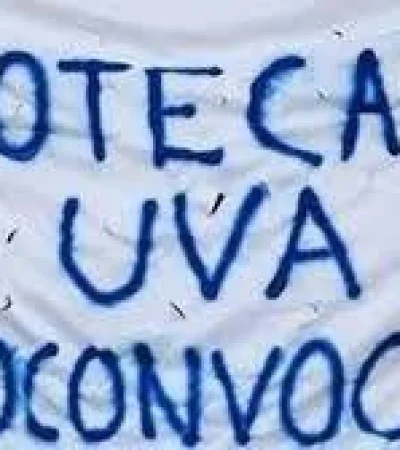 OTECA
UVA
OCONVOC